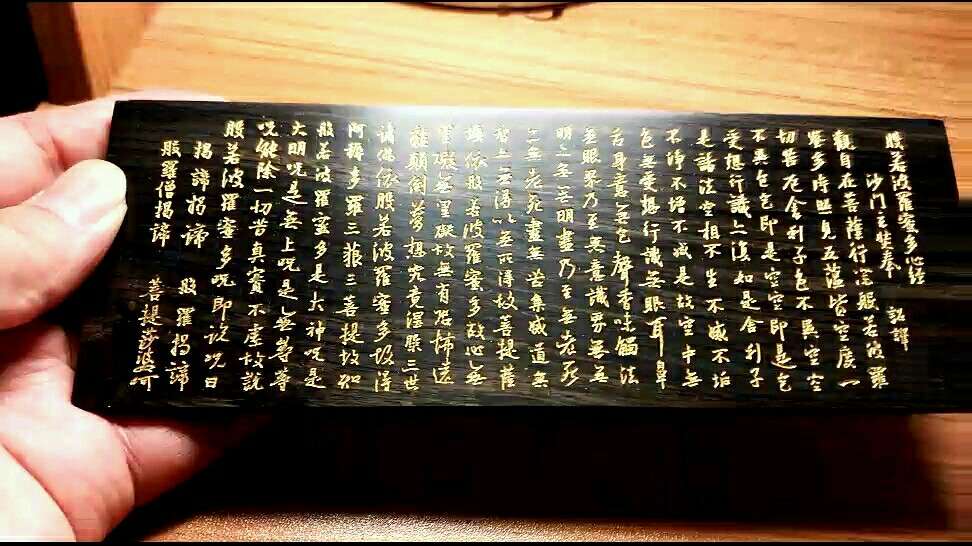 般若波羅蜜多心經
沙門玄奘奉 詔譯
觀自在菩薩行深般若波羅
蜜多時照見五蘊皆空度一
切苦厄舍利子色不異空空
不異色色即是空空即是色
受想行識亦復如是舍利子
是諸法空相不生不滅不垢
不淨不增不減是故空中無
色無受想行識無眼耳鼻
舌身意無色聲香味觸法
無眼界乃至無意識界無無
明亦無無明盡乃至無老死
亦無老死盡無苦集滅道無
智亦無得以無所得故菩提薩
埵依般若波羅蜜多故心無
罣礙無罣礙故無有恐怖遠
離顛倒夢想究竟涅槃三世
諸佛依般若波羅蜜多故得
阿耨多羅三藐三菩提故知
般若波羅蜜多是大神呪是
大明呪是無上呪是無等等
呪能除一切苦真實不虛故說
般若波羅蜜多呪即說呪曰
揭諦揭諦 般羅揭諦
般羅僧揭諦 菩提莎婆呵